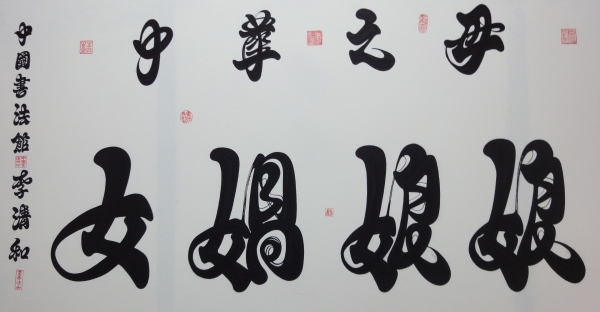 中華之母
女媧娘娘
中國書法館 李清和